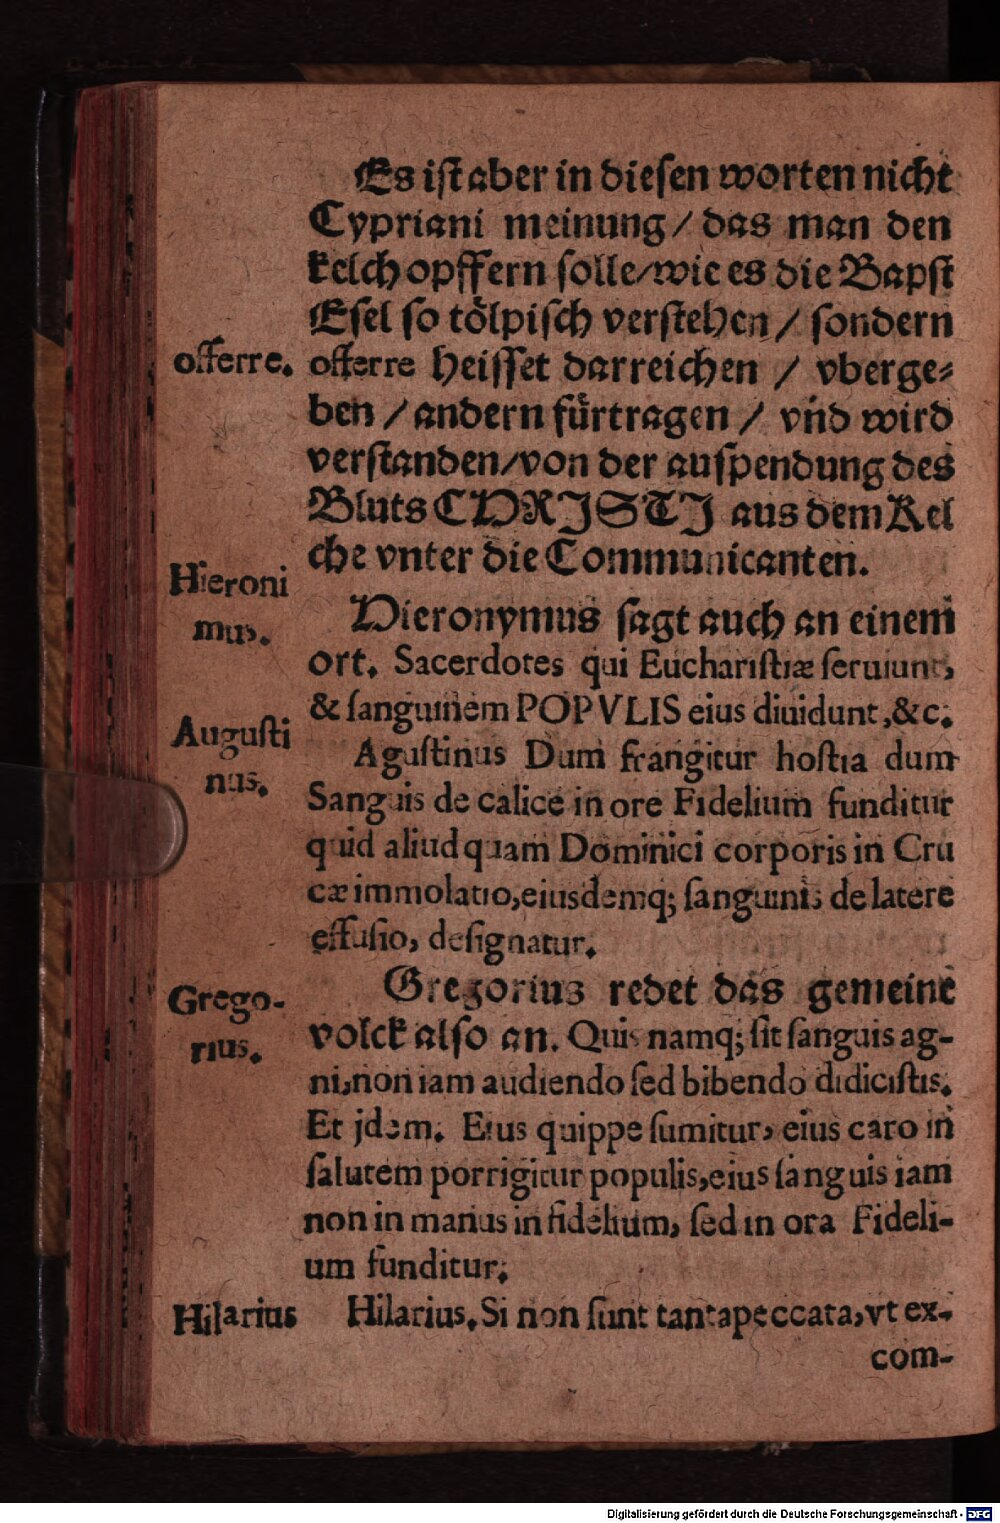 Es ist aber in diesen worten nicht
Cypriani meinung / das man den
kelch opffern solle/wie es die Bapst
Esel so tölpisch verstehen / sondern
offerre.
offerre heisset darreichen / vberge⸗
ben / andern fürtragen / vnd wird
verstanden/von der auspendung des
Bluts CHRISTI aus dem Kel
che vnter die Communicanten.
Hieroni
mus.
Hieronymus sagt auch an einem
ort. Sacerdotes qui Eucharistiæ seruiunt,
& sanguinem POPVLIS eius diuidunt,&c.
Augusti
nus.
Agustinus Dum frangitur hostia dum
Sanguis de calice in ore Fidelium funditur
quid aliud quam Dominici corporis in Cru
cæ immolatio,eiusdemq; sanguinis de latere
effusio, designatur.
Grego-
rius.
Gregorius redet das gemeine
volck also an. Quis namq; sit sanguis ag-
ni,non iam audiendo sed bibendo didicistis.
Et jdem. Eius quippe sumitur, eius caro in
salutem porrigitur populis,eius sanguis iam
non in manus infidelium, sed in ora Fideli-
um funditur.
Hilarius
Hilarius. Si non sunt tanta peccata, vt ex-
com-
Digitalisierung gefördert durch die Deutsche Forschungsgemeinschaft - DFG